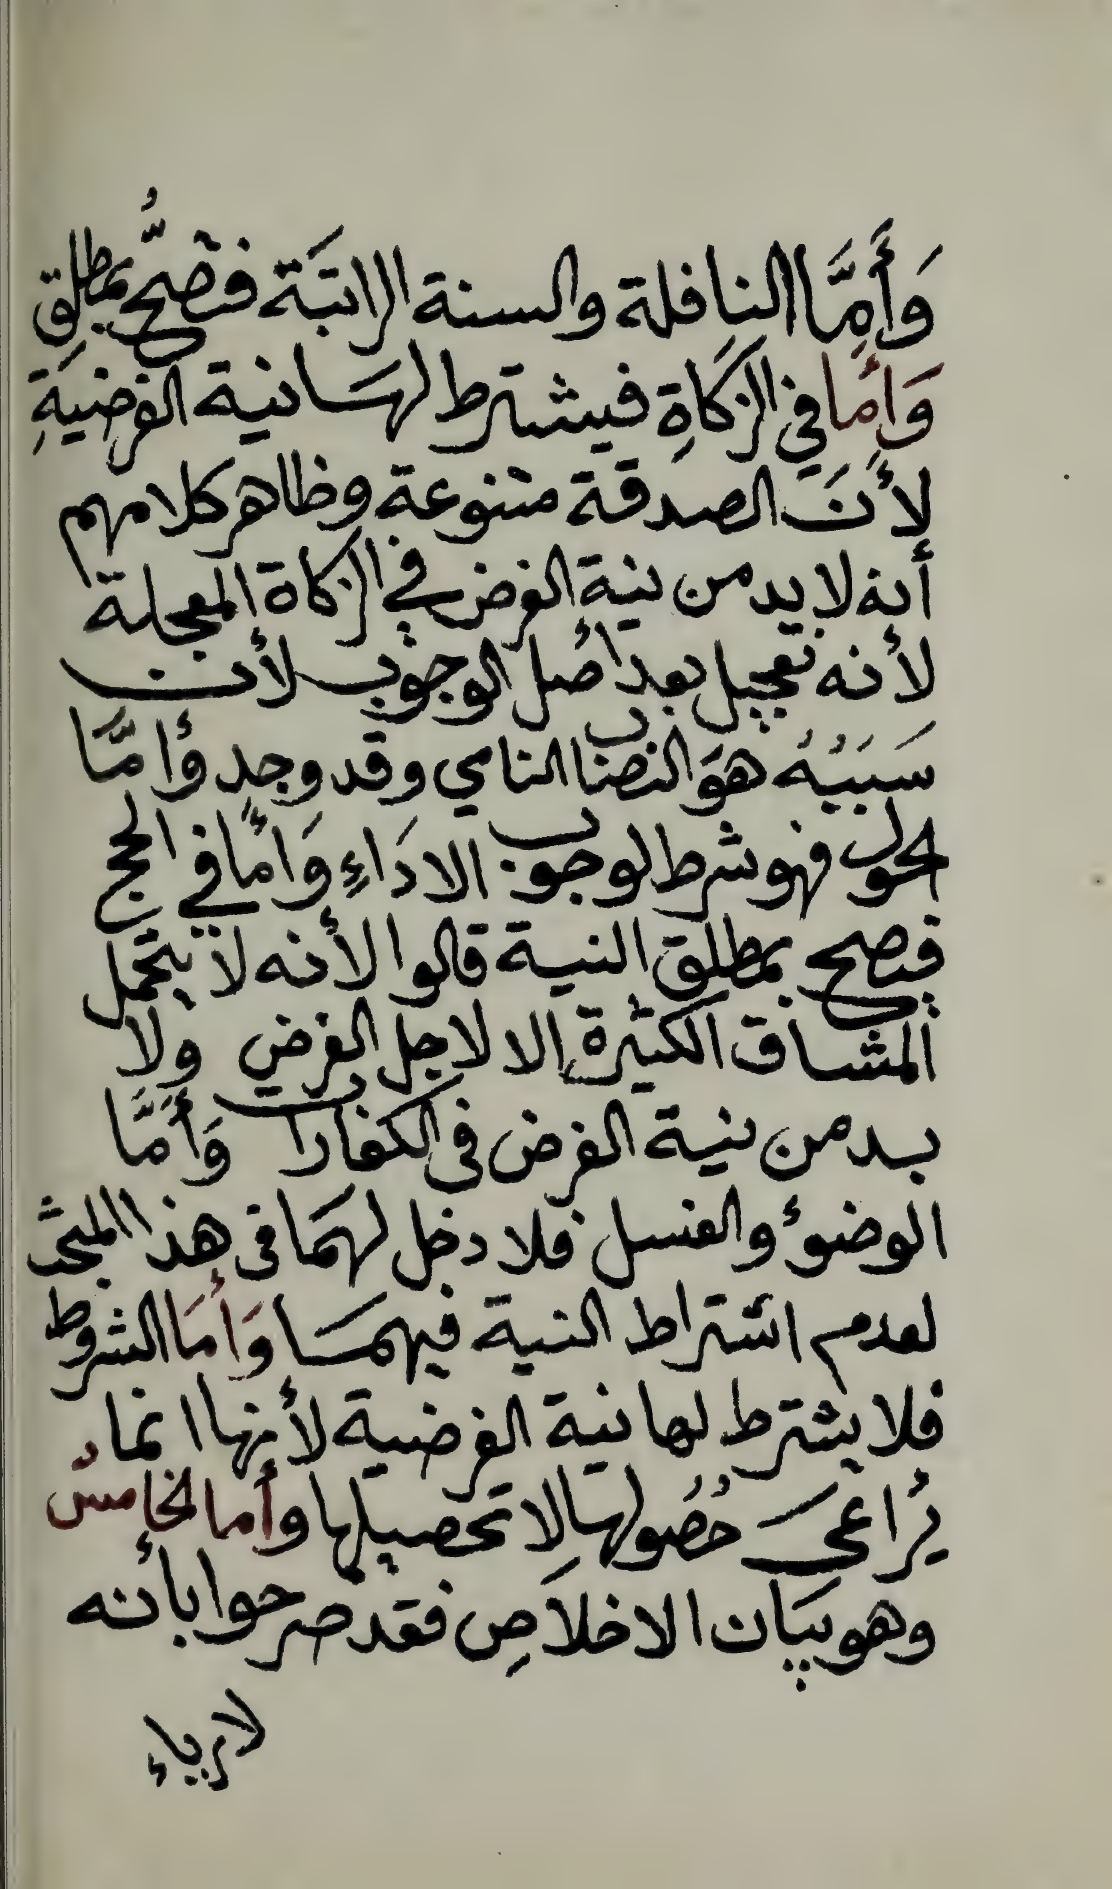 وَأَمَّا النافلة والسنة الراتبَة فتصحُّ بمطلق
وَأمَا في الزكَاةِ فيشترط لهَا نية الفرضيَةِ
لأَنَ الصدقة متنوعة وظاهر كلامهم
أنه لا بد من نية الفرض في الزكاة المعجلة
لأنه تعجيل بعد أصل الوجوب لأن
سَبَبُهُ هوَ النصاب النامي وقد وجد وأمَّا
الحول فهو شرط لوجوب الادَاءِ وَأمَّا في الحج
فيصح بمطلق النية قالوا لأنه لا يتحمل
المشاق الكثيرة الا لاجل الفرض ولا
بد من نية الفرض في الكفارات وَأَمَّا
الوضوٴ والغسل فلا دخل لهمَا في هذا المبحث
لعدم اشتراط النية فيهمَا وَأَمَا الشروط
فلا يشترط لها نية الفرضية لأنها انما
يُرَاعَى حُصُولها لا تحصيلها وأما الخامسُ
وهو بيَان الاخلاَصِ فقد صرحوا بأنه
لا رياء